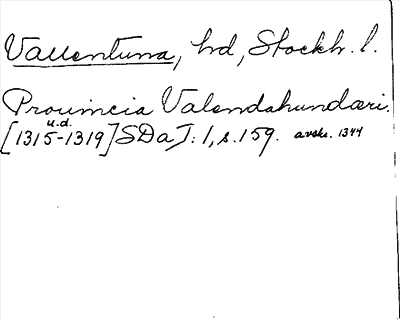 Vallentuna, hd, Stockh. l.
Prouincia Valendahundæri.
u.d.
[1315-1319] SDa I: 1, s. 159. avskr. 1344